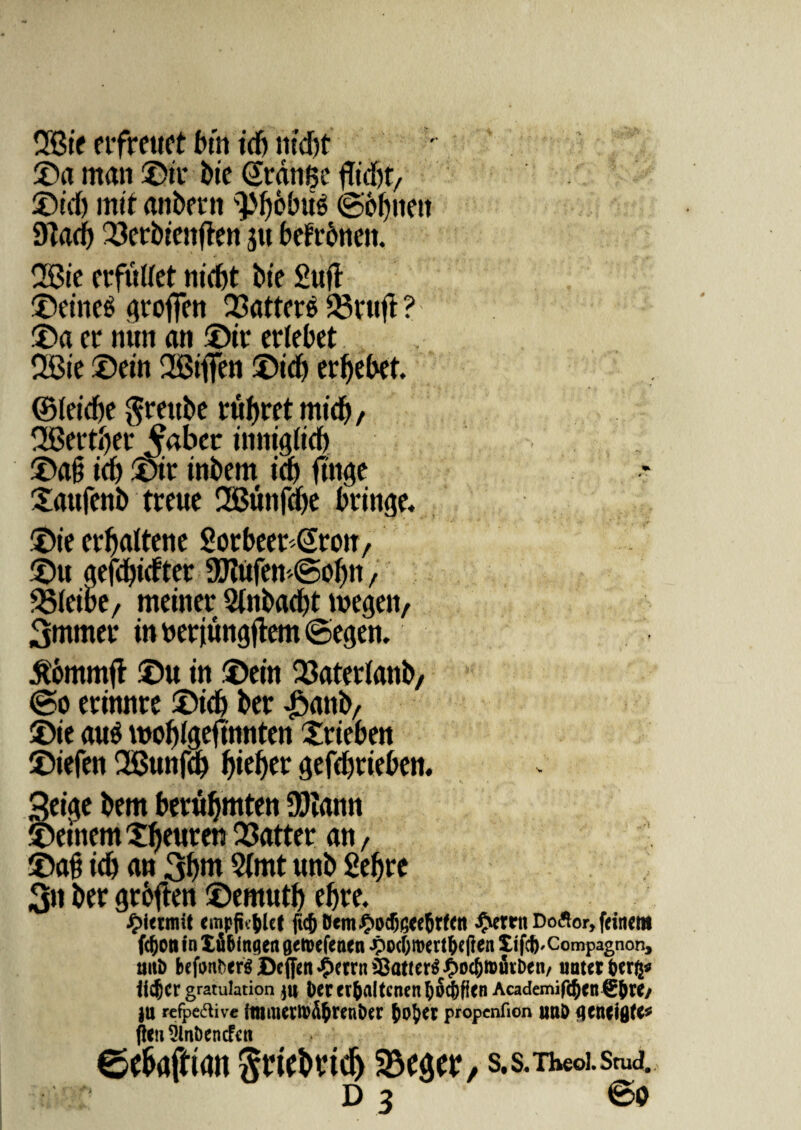 Wie erfreuet bin ich nicht
Da man Dir die Cräntze flicht,
Dich mit andern Phöbus Söhnen
Nach Verdiensten zu bekrönen.
Wie erfüllet nicht die Lust
Deines grossen Vatters Brust?
Da er nun an Dir erlebet
Wie Dein Wissen Dich erhebet.
Gleiche Freude rühret mich,
Werther Faber inniglich
Daß ich Dir indem ich singe
Tausend treue Wünsche bringe.
Die erhaltene Lorbeer-Cron,
Du geschickter Müsen-Sohn,
Bleibe, meiner Andacht wegen,
Immer in verjüngstem Segen.
Kömmst Du in Dein Vaterland,
So erinnre Dich der Hand,
Die aus wohlgesinnten Trieben
Diesen Wunsch hieher geschrieben.
Zeige dem berühmten Mann
Deinem Theuren Vatter an,
Daß ich an Ihm Amt und Lehre
In der grösten Demuth ehre.
Hiermit empfiehlet sich dem Hochgeehrten Herrn Doctor, seinem
schon in Tübingen gewesenen Hochwerthesten Tisch-Compagnon,
und besonders Dessen Herrn Vatters Hochwürden, unter hertz-
licher gratulation zu der erhaltenen höchsten Academischen Ehre,
zu respective immerwährender hoher propension und geneigte-
sten Andencken
Sebastian Friedrich Beger, S. S. Theol. Stud.
D 3 So